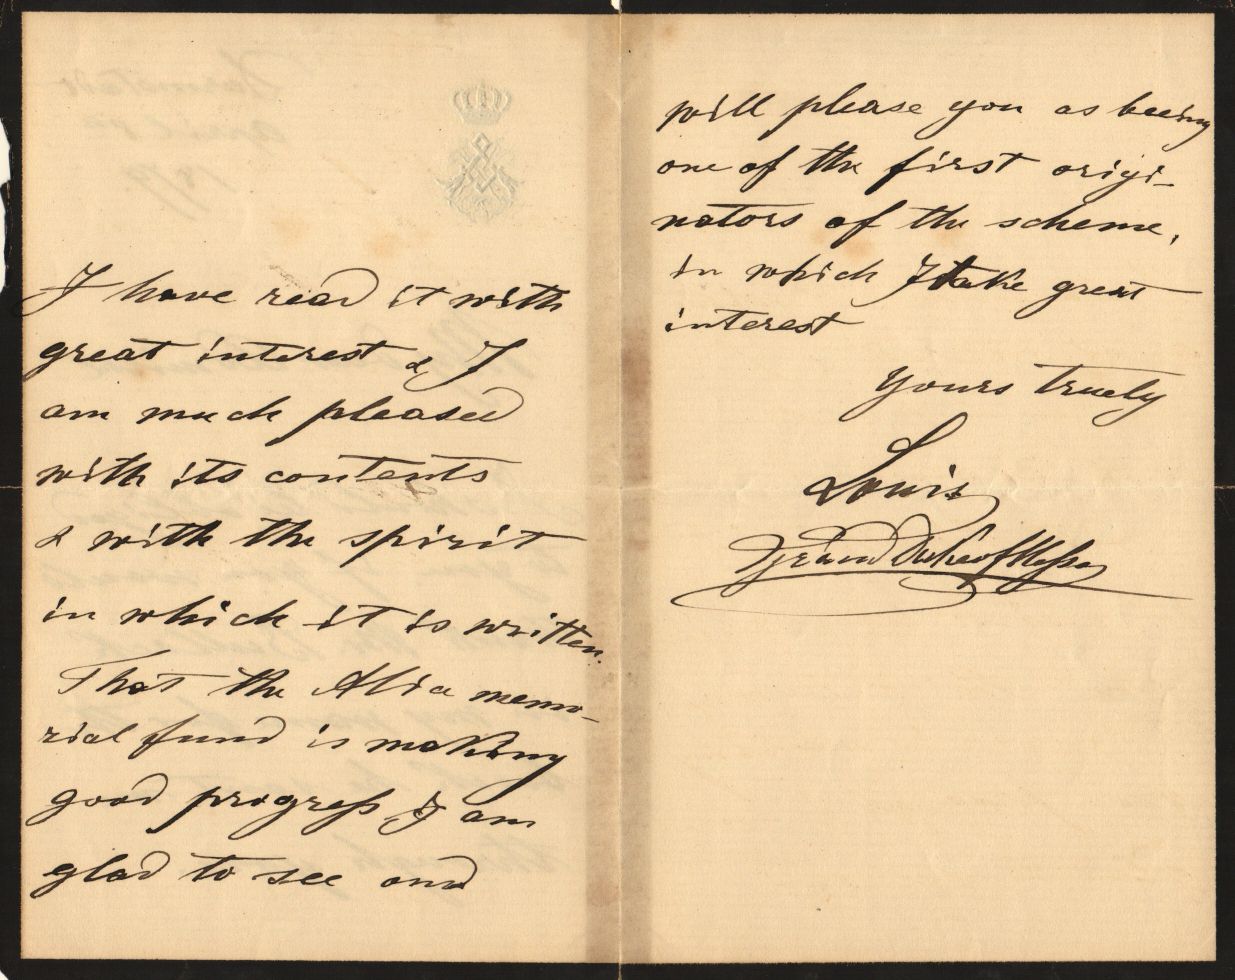 I have read it with
great interest & I
am much pleased
with its contents
& with the spirit
in which it is written.
That the Alice memo-
rial fund is making
good progress I am
glad to see and
will please you as beeing
one of the first origi-
nators of the scheme,
in which I take great
interest
Yours truely
Louis
Grand Duke of Hesse